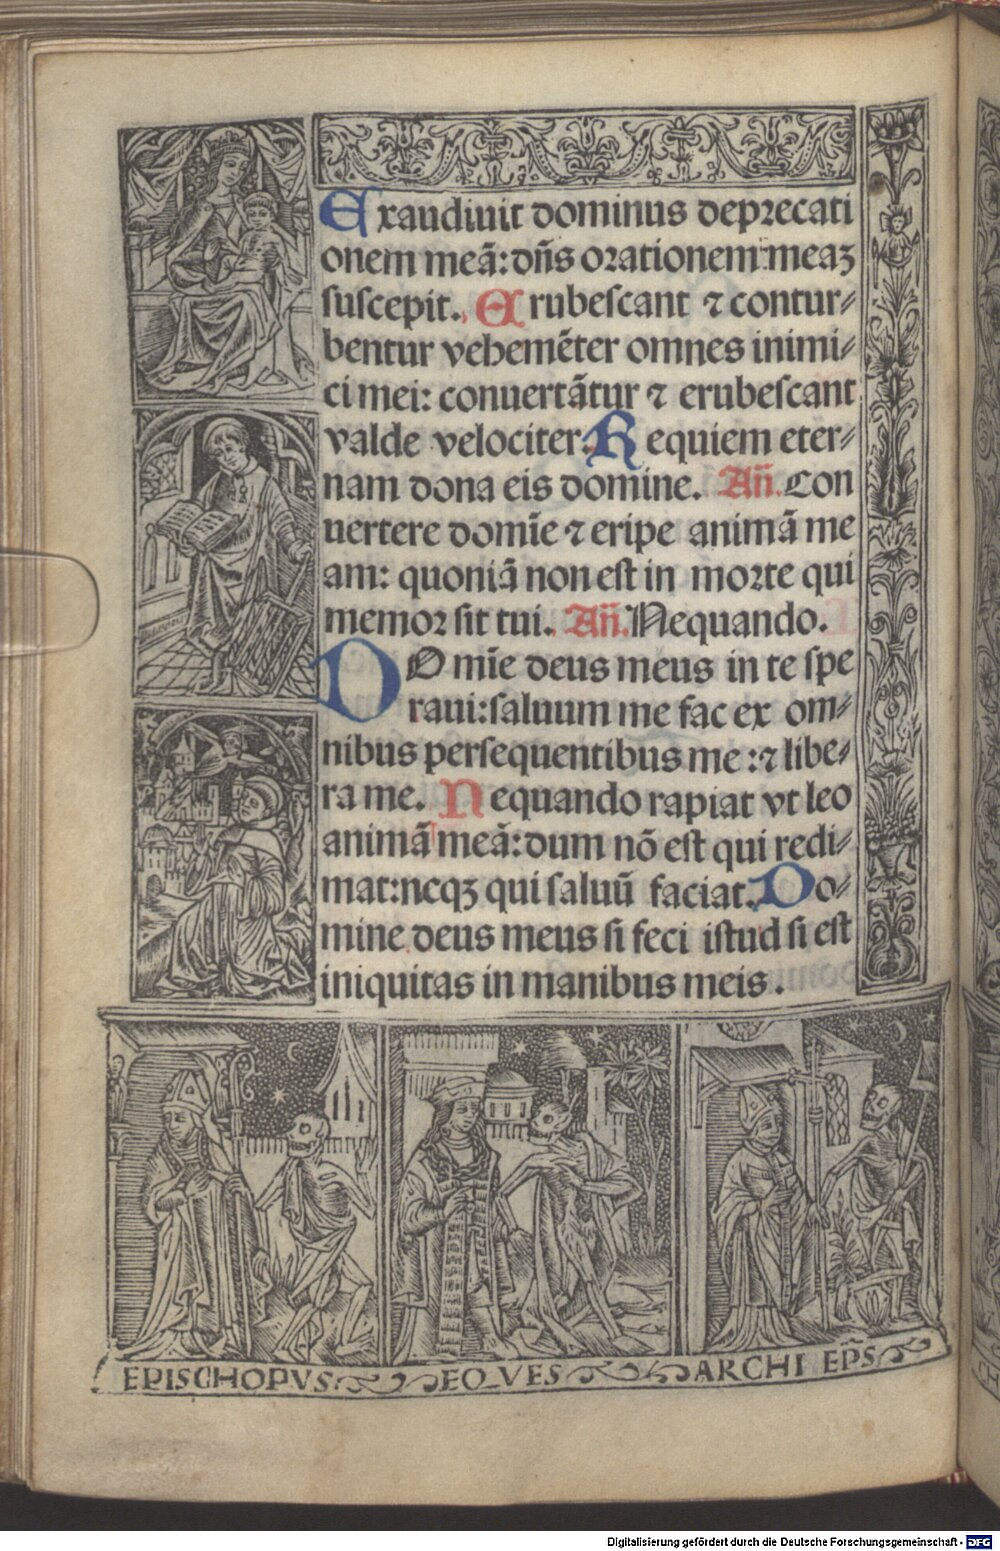 Exaudiuit dominus deprecati
onem meā: dñs orationem meaꝫ
suscepit. Erubescant ⁊ contur⸗
bentur vehemēter omnes inimi⸗
ci mei: conuertātur ⁊ erubescant
valde velociter. Requiem eter⸗
nam dona eis domine. Añ. Con
uertere domīe ⁊ eripe animā me
am: quoniā non est in morte qui
memor sit tui. Añ. Nequando.
DOmīe deus meus in te spe
raui: saluum me fac ex om⸗
nibus persequentibus me: ⁊ libe⸗
ra me. Nequando rapiat vt leo
animā meā: dum nō est qui redi⸗
mat: neqꝫ qui saluū faciat. Do⸗
mine deus meus si feci istud si est
iniquitas in manibus meis.
EPISCHOPVS EQVES ARCHI EP̃S
Digitalisierung gefördert durch die Deutsche Forschungsgemeinschaft - DFG